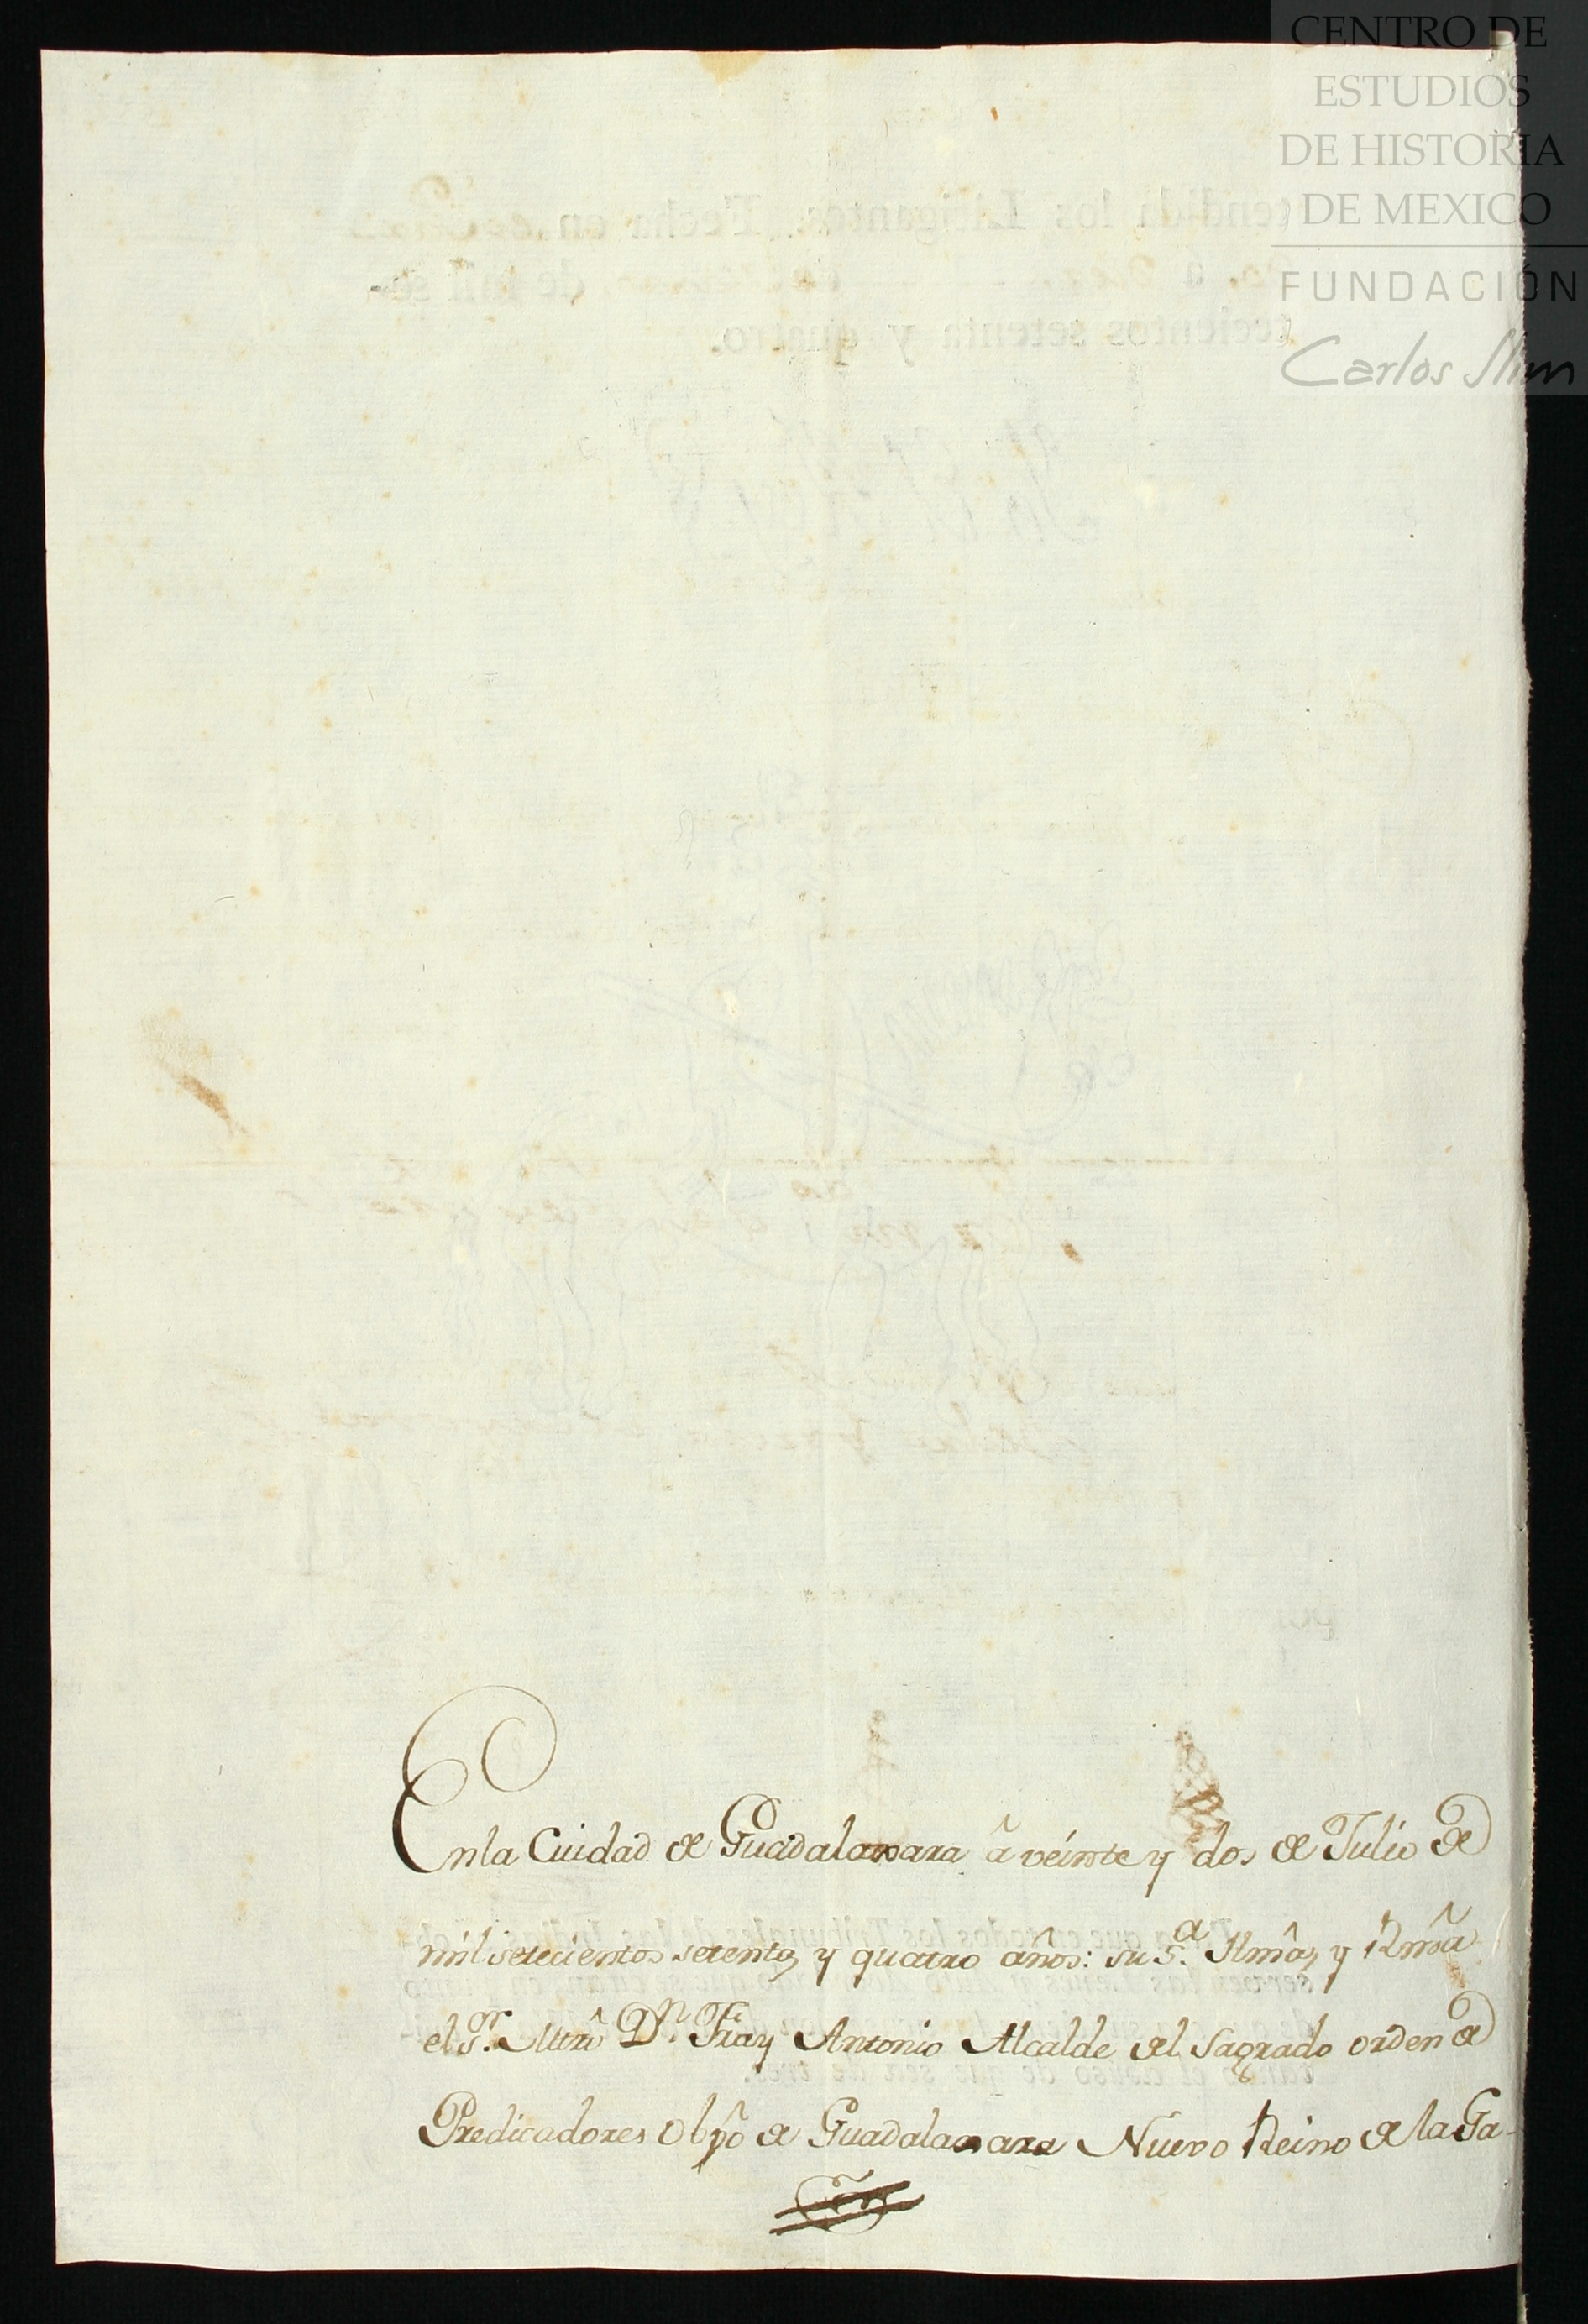 CENTRO DE
ESTUDIOS
DE HISTORIA
DE MEXICO
FUNDACIÓN
Carlos Slim
En la Cuidad de Guadalaxara â veinte y dos de Julio de
mil setecientos setenta, y quatro años: su S.ª Ilmâ, y Rmâ
el S.or Mtrô D.n Fray Antonio Alcalde del Sagrado orden de
Predicadores Obpô de Guadalaxara Nuevo Reino de la Ga-